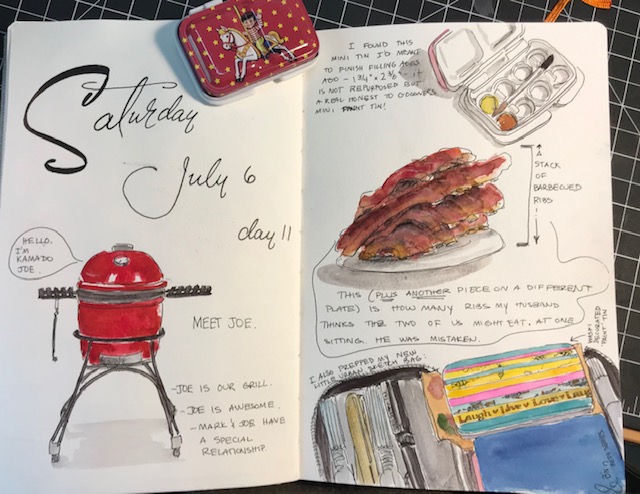 Saturday
July 6
day 11
HELLO.
I'M
KAMADO
JOE.
MEET JOE.
-JOE IS OUR GRILL.
-JOE IS AWESOME.
-MARK & JOE HAVE
A SPECIAL
RELATIONSHIP.
I FOUND THIS
MINI TIN I'D MEANT
TO FINISH FILLING AGES
AGO - 1 3/4" x 2 3/8" - IT
IS NOT REPURPOSED BUT
A REAL HONEST TO GOODNESS
MINI PAINT TIN!
A
STACK
OF
BARBECUED
RIBS
THIS (PLUS ANOTHER PIECE ON A DIFFERENT
PLATE) IS HOW MANY RIBS MY HUSBAND
THINKS THE TWO OF US MIGHT EAT. AT ONE
SITTING. HE WAS MISTAKEN.
I ALSO PREPPED MY NEW
LITTLE URBAN SKETCH BAG.
WASHI
DECORATED
PAINT TIN
Laugh Live Love Laug